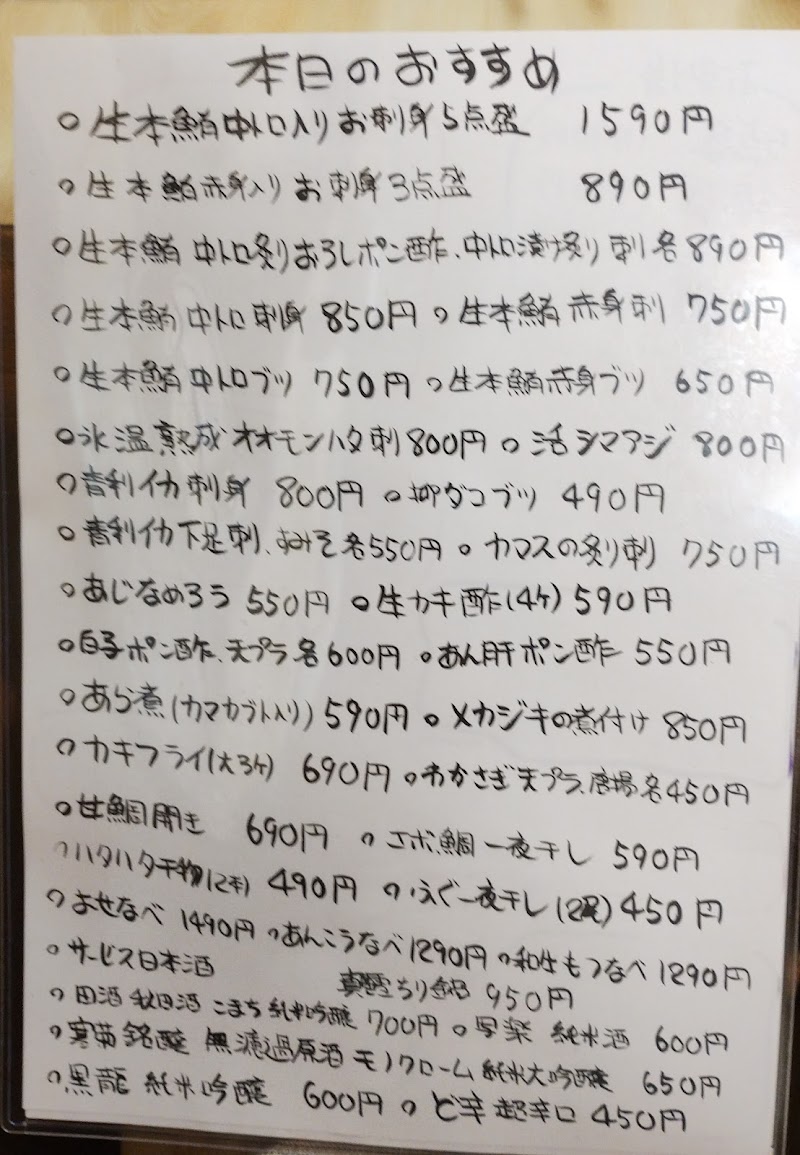 本日のおすすめ
○生本鮪中トロ入りお刺身5点盛 1590円
○生本鮪赤身入りお刺身3点盛 890円
○生本鮪 中トロ炙りおろしポン酢、中トロ漬け炙り刺 各890円
○生本鮪 中トロ刺身 850円 ○生本鮪 赤身刺 750円
○生本鮪中トロブツ 750円 ○生本鮪赤身ブツ 650円
○氷温熟成オオモンハタ刺800円 ○活シマアジ 800円
○青利イカ刺身 800円 ○柳ダコブツ 490円
○青利イカ下足刺、すみそ各550円 ○カマスの炙り刺 750円
○あじなめろう 550円 ○生カキ酢(4ケ) 590円
○白子ポン酢、天プラ各600円 ○あん肝ポン酢 550円
○あら煮(カマカブト入り) 590円 ○メカジキの煮付け 850円
○カキフライ(大3ケ) 690円 ○わかさぎ天プラ、唐揚各450円
○甘鯛開き 690円 ○エボ鯛一夜干し 590円
○ハタハタ干物(2本) 490円 ○ふぐ一夜干し(2尾) 450円
○よせなべ 1490円 ○あんこうなべ1290円 ○和牛もつなべ 1290円
○サービス日本酒 真鱈ちり鍋 950円
○田酒 秋田酒こまち 純米吟醸 700円 ○写楽 純米酒 600円
○寒菊銘醸 無濾過原酒 モノクローム 純米大吟醸 650円
○黒龍 純米吟醸 600円 ○ど辛 超辛口 450円